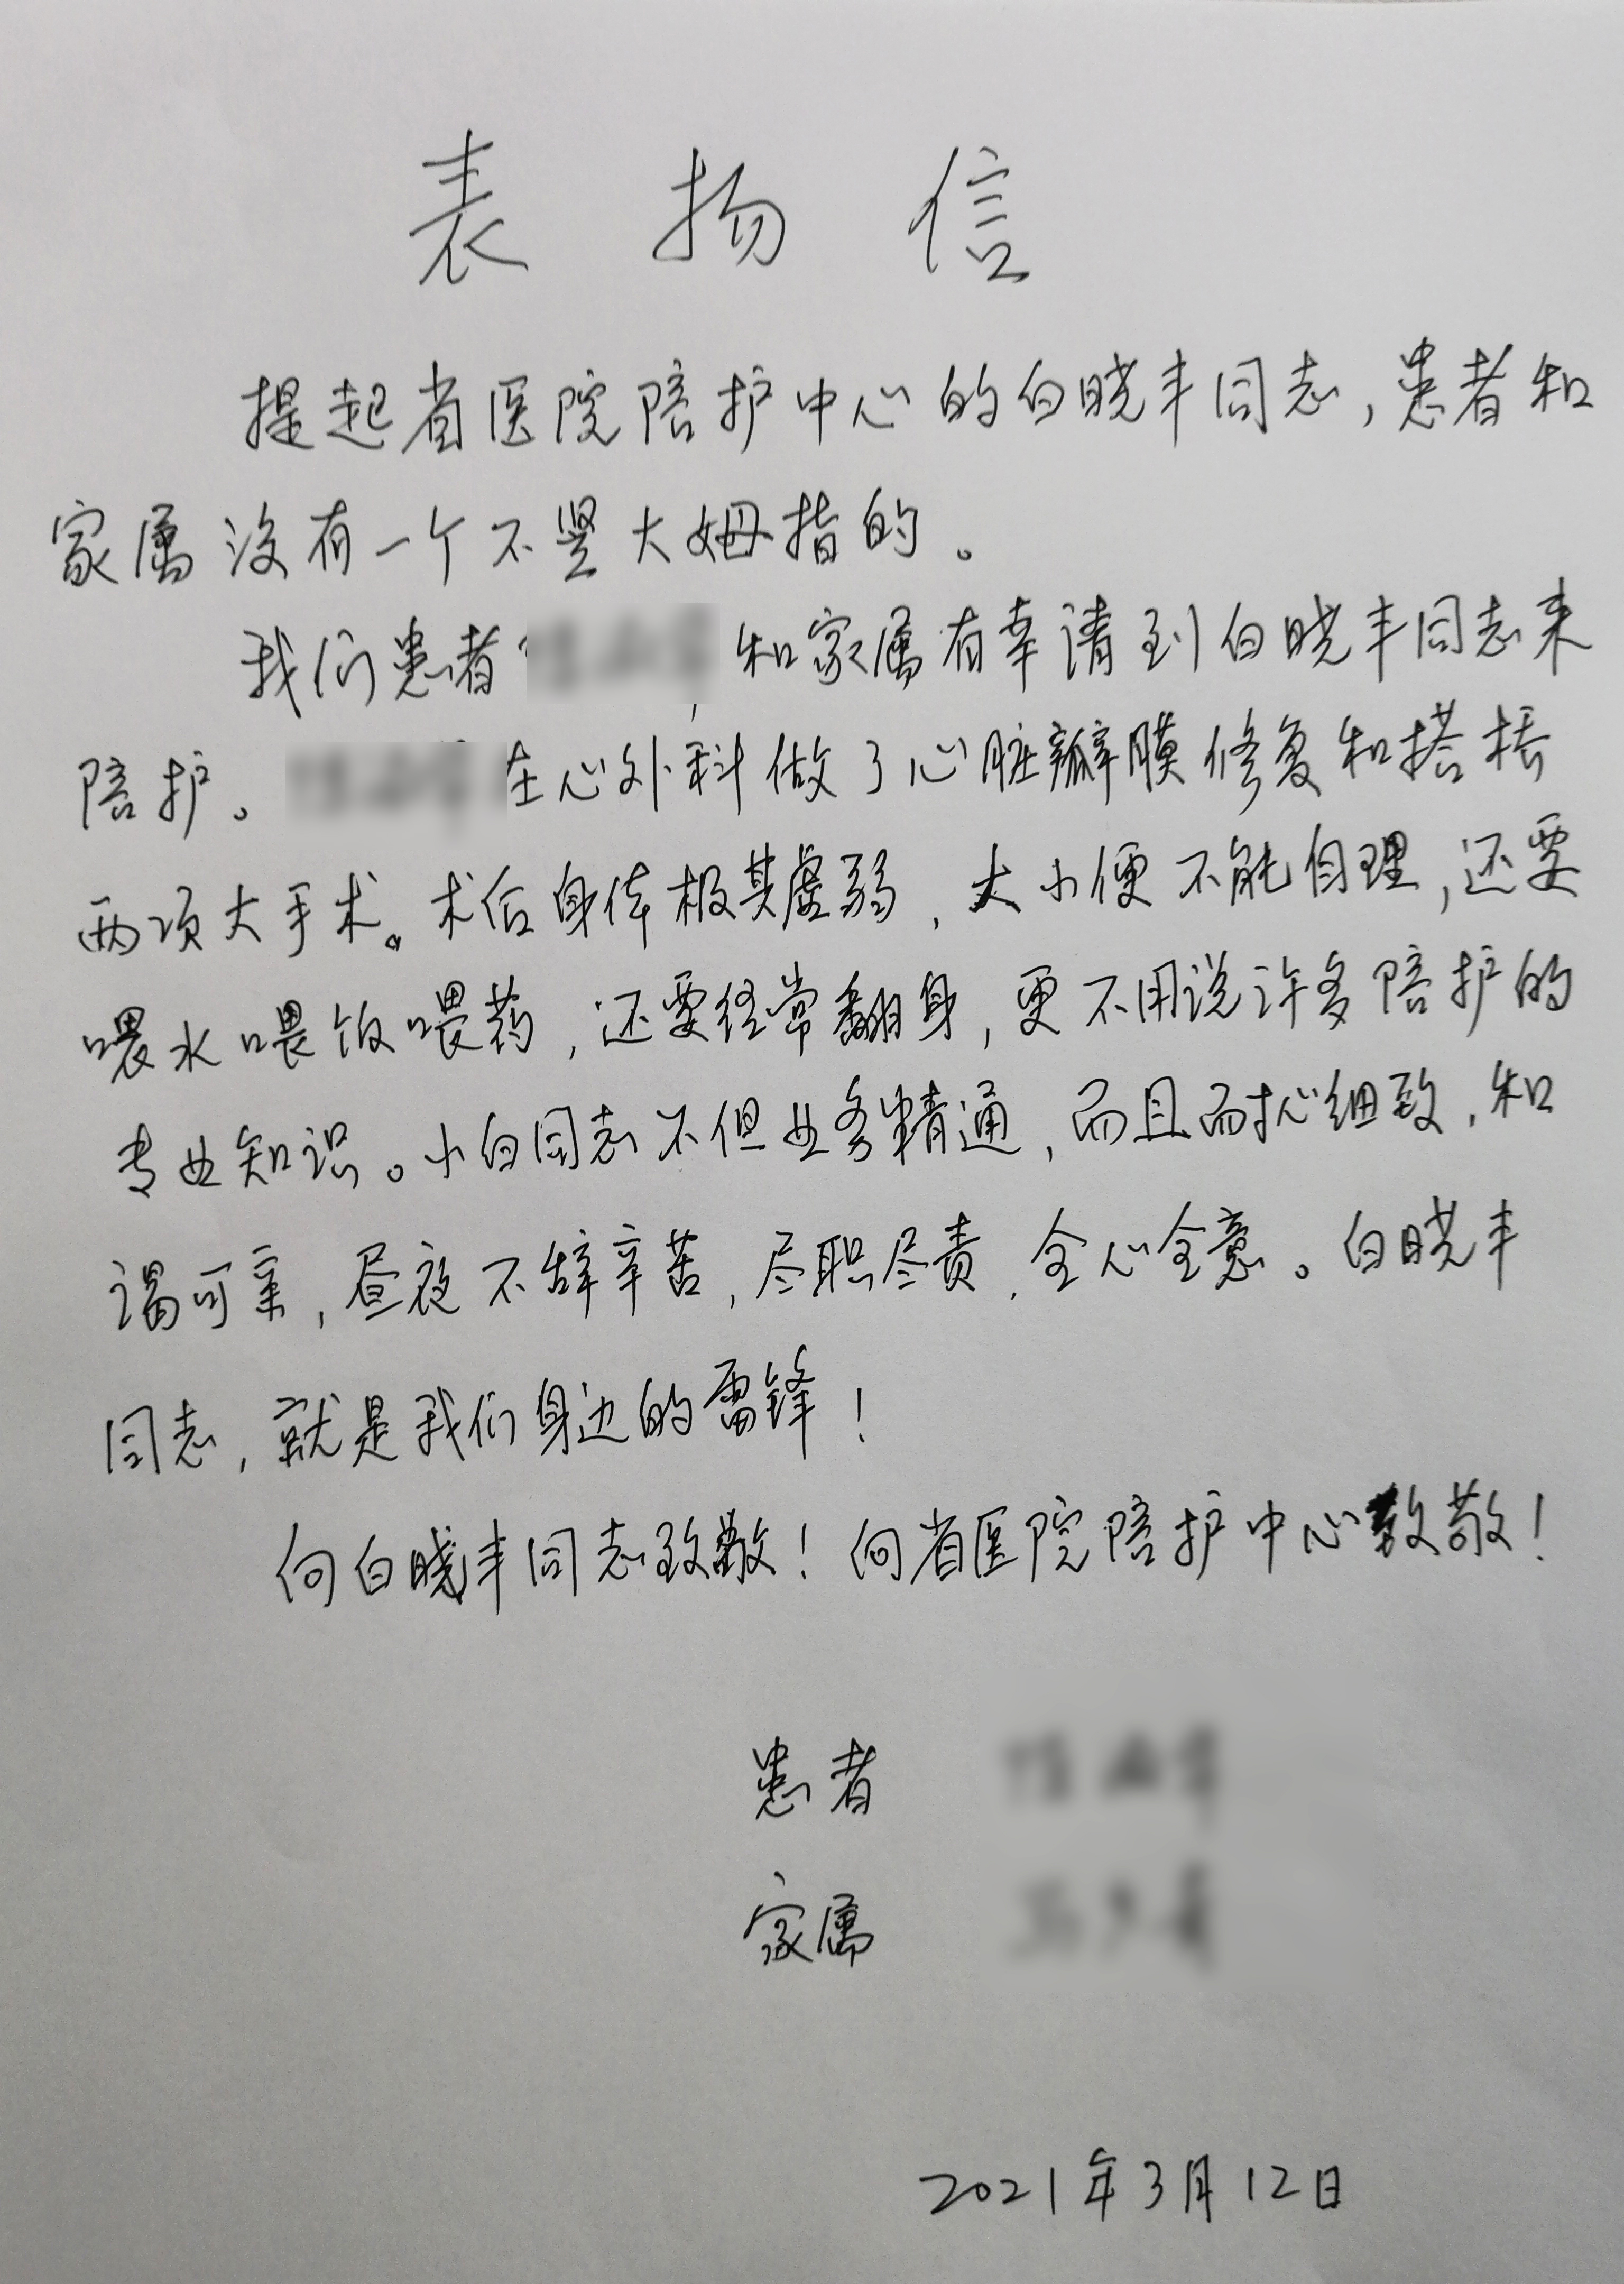 表扬信
提起省医院陪护中心的白晓丰同志,患者和
家属没有一个不竖大姆指的。
我们患者 和家属有幸请到白晓丰同志来
陪护。 在心外科做了心脏瓣膜修复和搭桥
两项大手术。术后身体极其虚弱,大小便不能自理,还要
喂水喂饭喂药,还要经常翻身,更不用说许多陪护的
专业知识。小白同志不但业务精通,而且而扰心细致,和
谒可亲,昼夜不辞辛苦,尽职尽责,全心全意。白晓丰
同志,就是我们身边的雷锋!
向白晓丰同志致敬!向省医院陪护中心致敬!
患者
家属
2021年3月12日